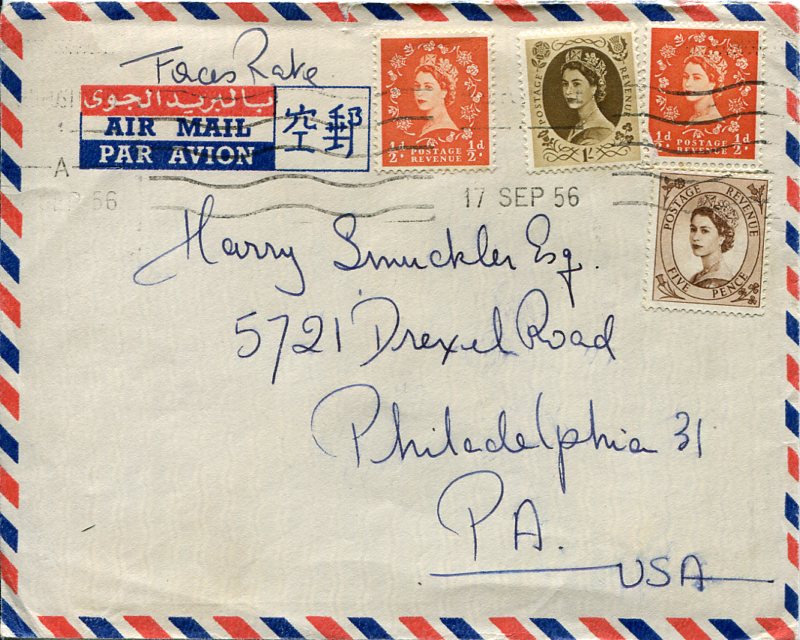 Faces Rate
بالبريد الجوى
AIR MAIL
PAR AVION
空郵
½d ½d
POSTAGE
REVENUE
POSTAGE REVENUE
1/-
½d ½d
POSTAGE
REVENUE
POSTAGE REVENUE
FIVE PENCE
A
SEP 56
17 SEP 56
Harry Smuckler Esq.
5721 Drexel Road
Philadelphia 31
PA.
USA